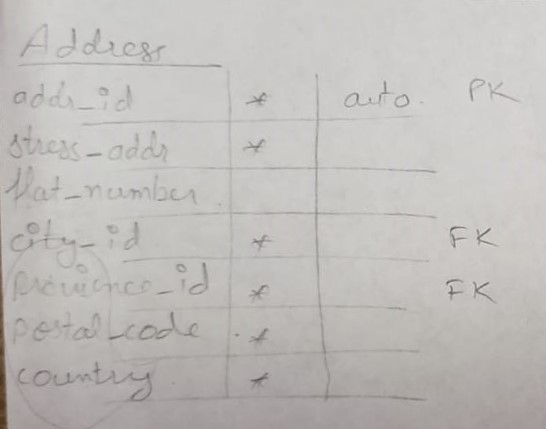 Address
addr_id * auto. PK
stress_addr *
flat_number
city_id * FK
province_id * FK
postal_code *
country *